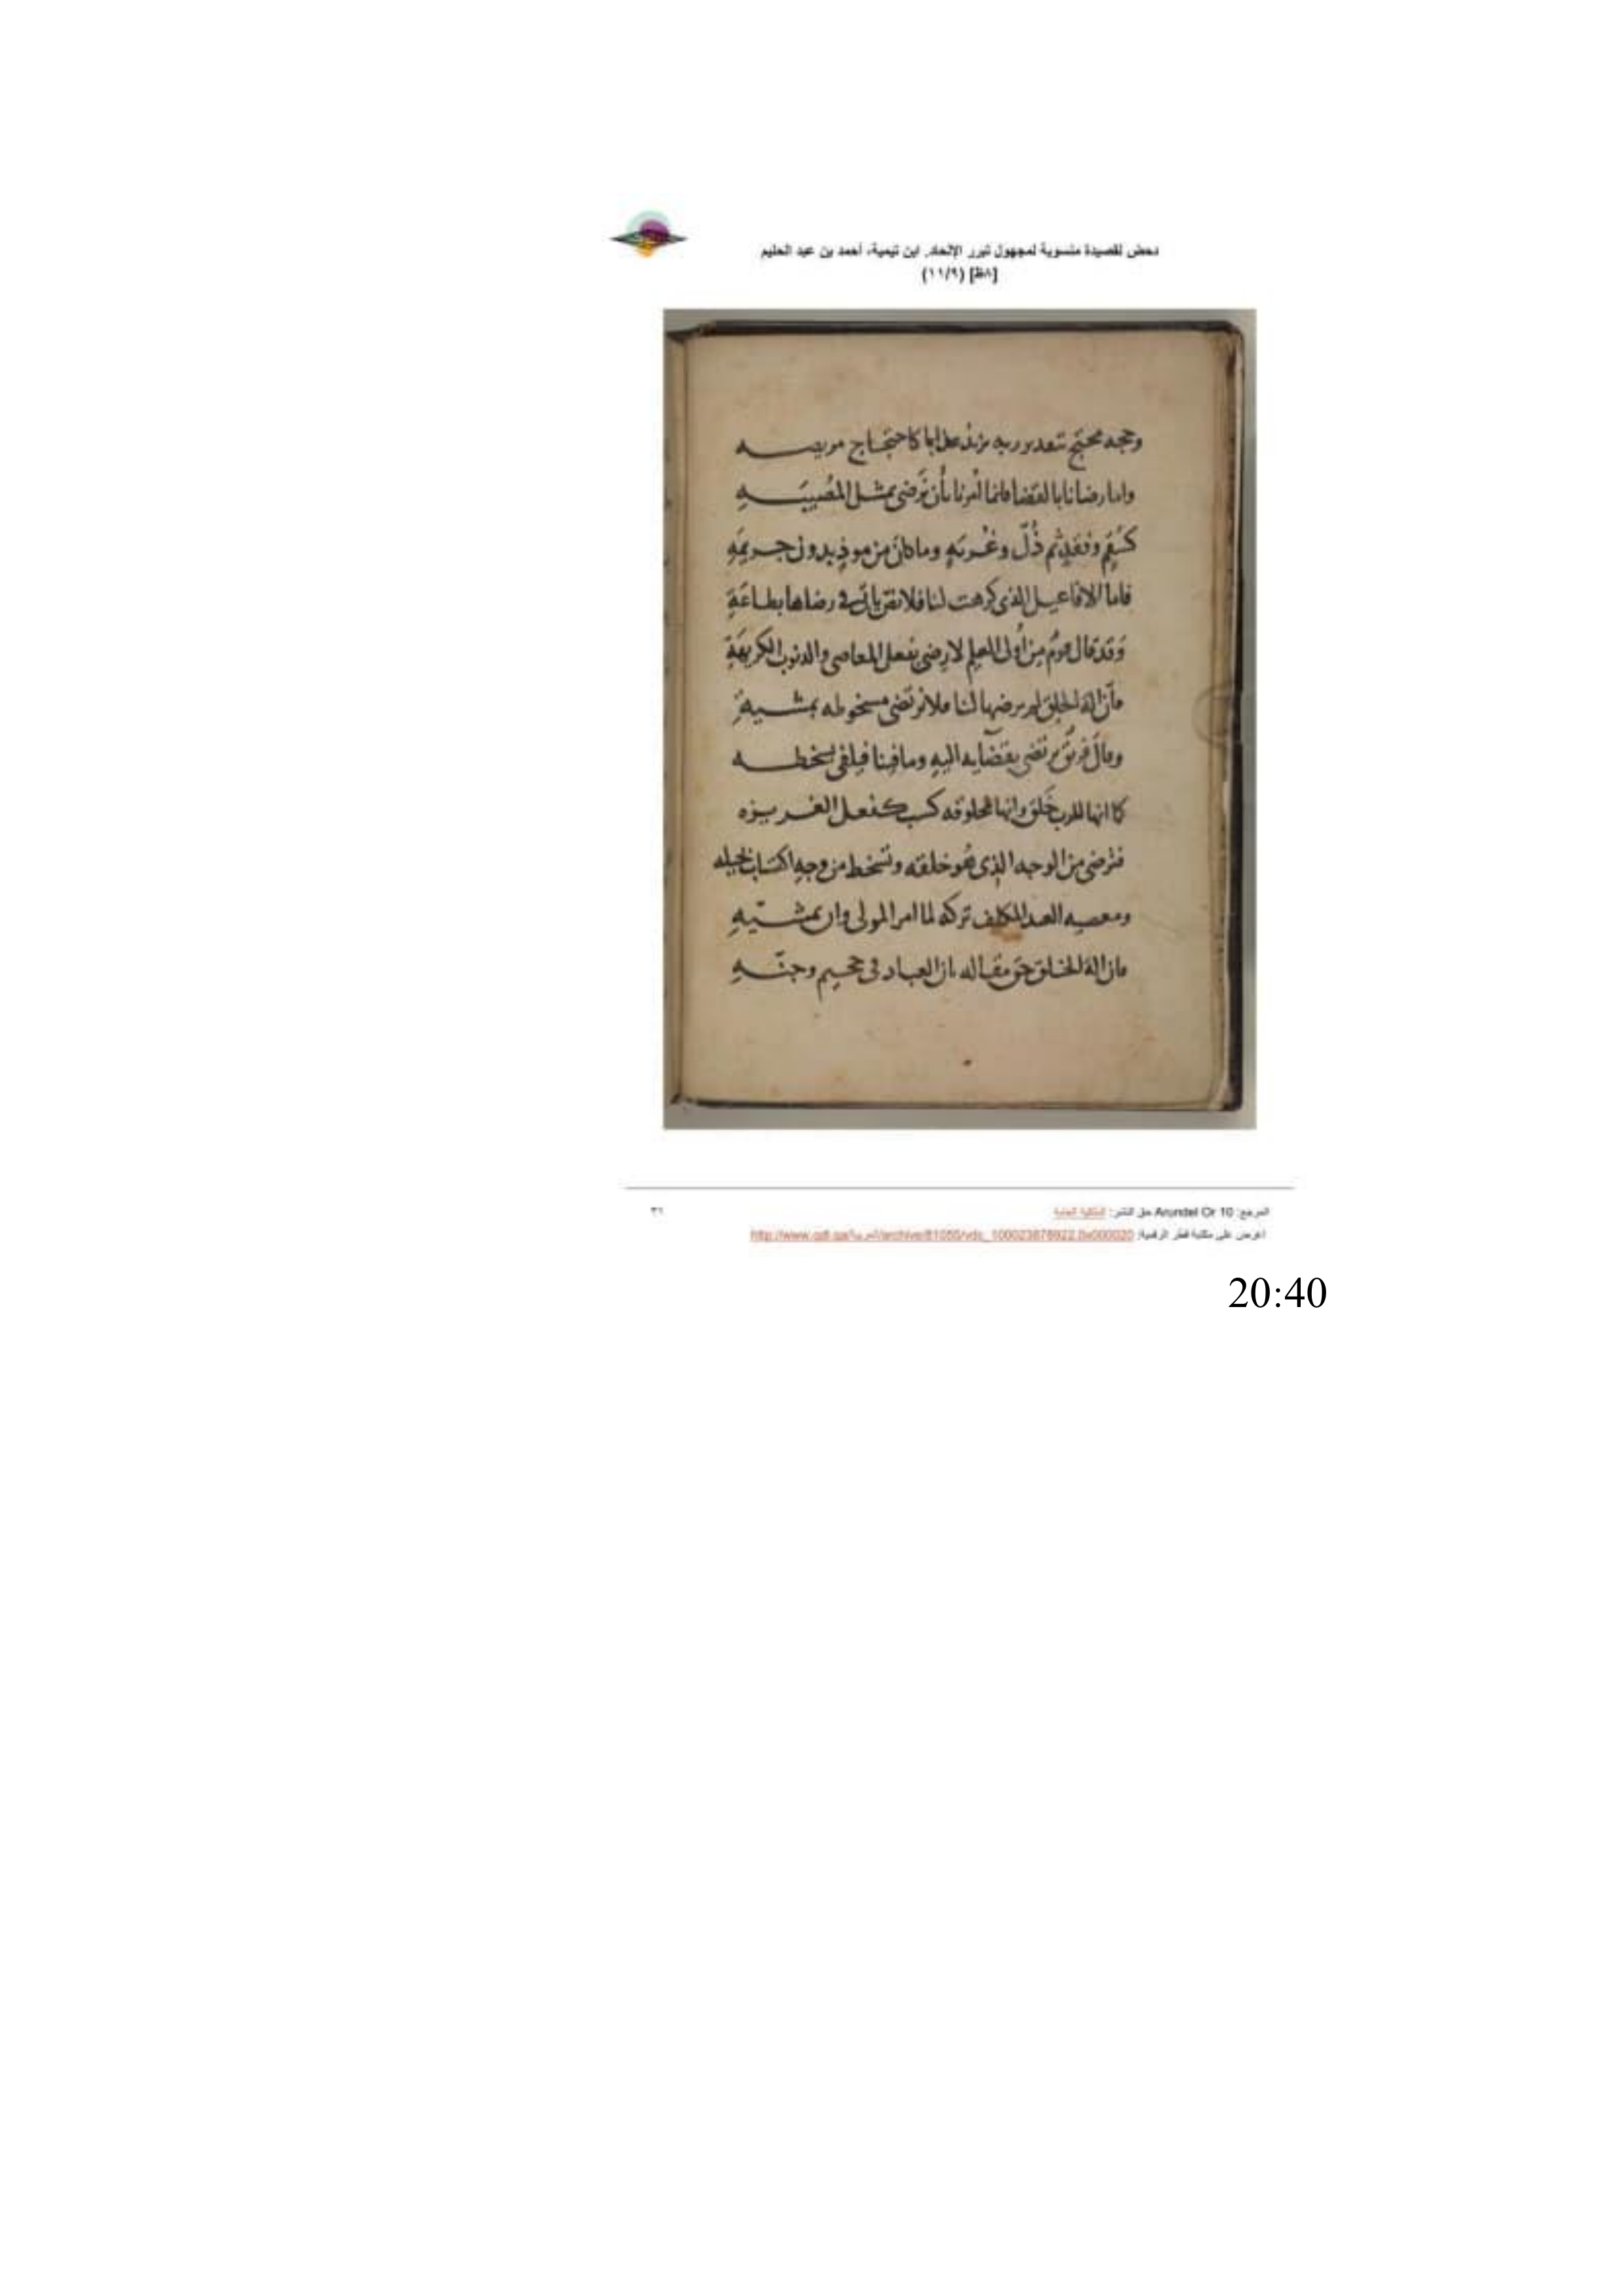 دحض لقصيدة منسوبة لمجهول تبرر الإلحاد. ابن تيمية، أحمد بن عبد الحليم
[٨ظ] (١١/٩)
وحجه محتج بتقدير ربه تزيد عذابا كاحتجاج مريضه
واما رضانا بالقضا فانما امرنا بأن نَرضى بمثل المُصيبَةِ
كسُقمٍ وفقرٍ ثم ذُلّ وغُربَةٍ وما كان من موذٍ بدون جريمَةِ
فاما الافاعيل الذى كرهت لنا فلا نص يأتى فى رضاها بطاعَةِ
وَقد قال قومٌ من أولى العلم لا رضى بفعل المعاصى والذنوب الكريهَةِ
فأن اله الخلق لم يرضها لنا فلا نرتضى مسخوطه بمشيةِ
وقال فريق نرتضى بقضايه اليهِ وما فينا فيلقى بسخطه
كما انها للرب خَلق وانها لمخلوقه كسب كفعل الغريزه
فنرضى من الوجه الذى هو خلقه ونسخط من وجهِ اكتساب بحيله
ومعصيه العبد المكلف تركه لما امر المولى وان بمشيّةِ
فان اله الخلق حق مقاله بان العباد فى جحيم وجنّةِ
المرجع: Arundel Or 10 حق النشر: الملكية العامة
٣١
اعرض على مكتبة قطر الرقمية:
20:40